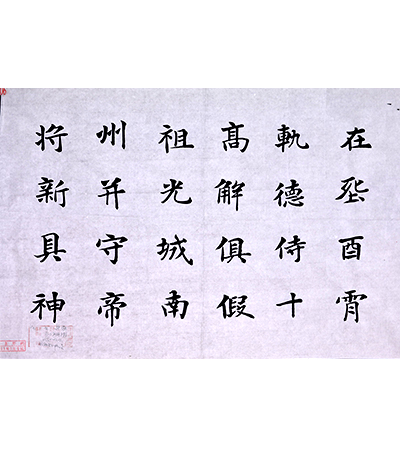 在丞酉霄
軌德侍十
高解俱假
祖光城南
州并守帝
将新具神